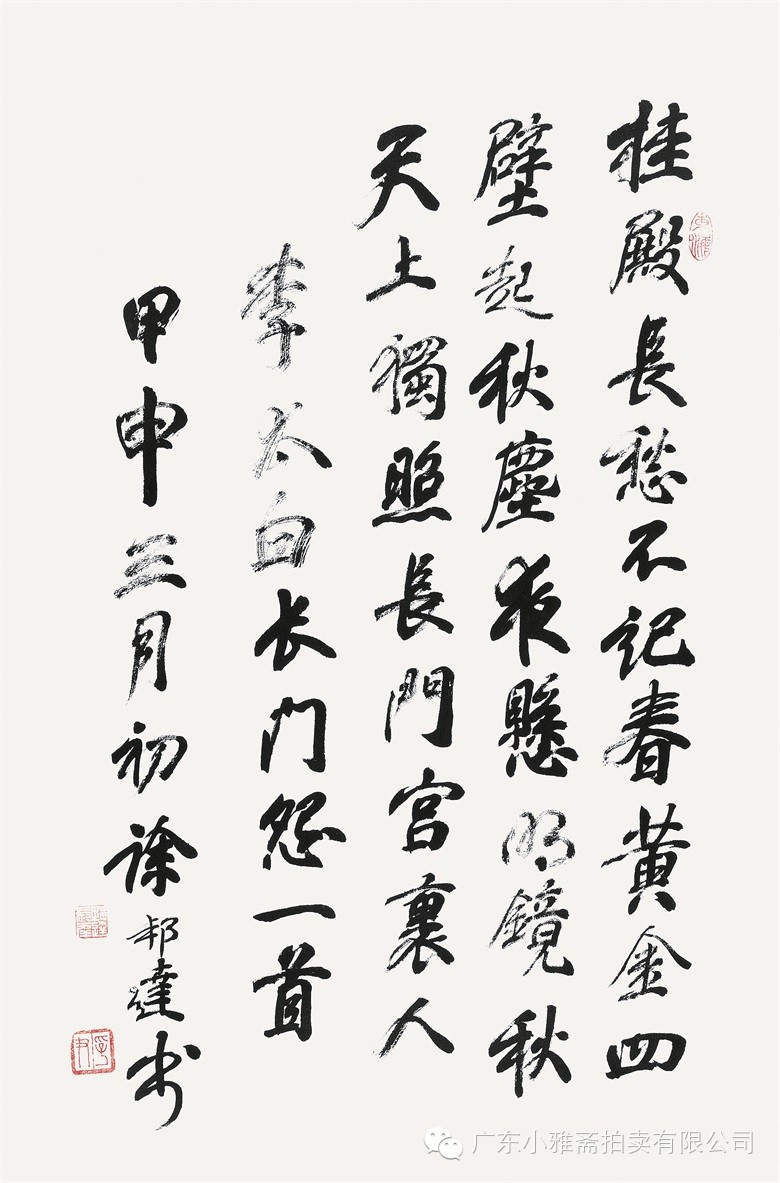 桂殿長愁不記春黄金四
壁起秋塵夜懸明鏡秋
天上獨照長門宮裏人
李太白长门怨一首
甲申三月初徐邦達书
广东小雅斋拍卖有限公司